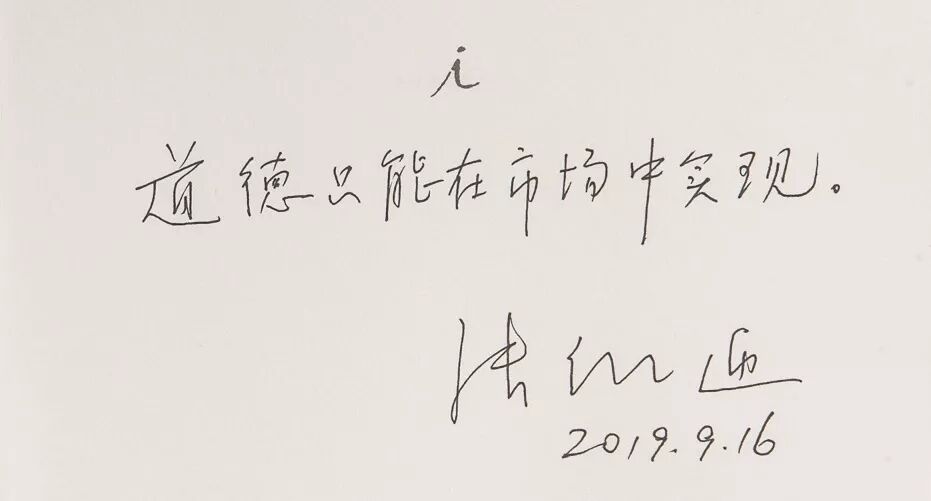 i
道德只能在市场中实现。
张维迎
2019.9.16